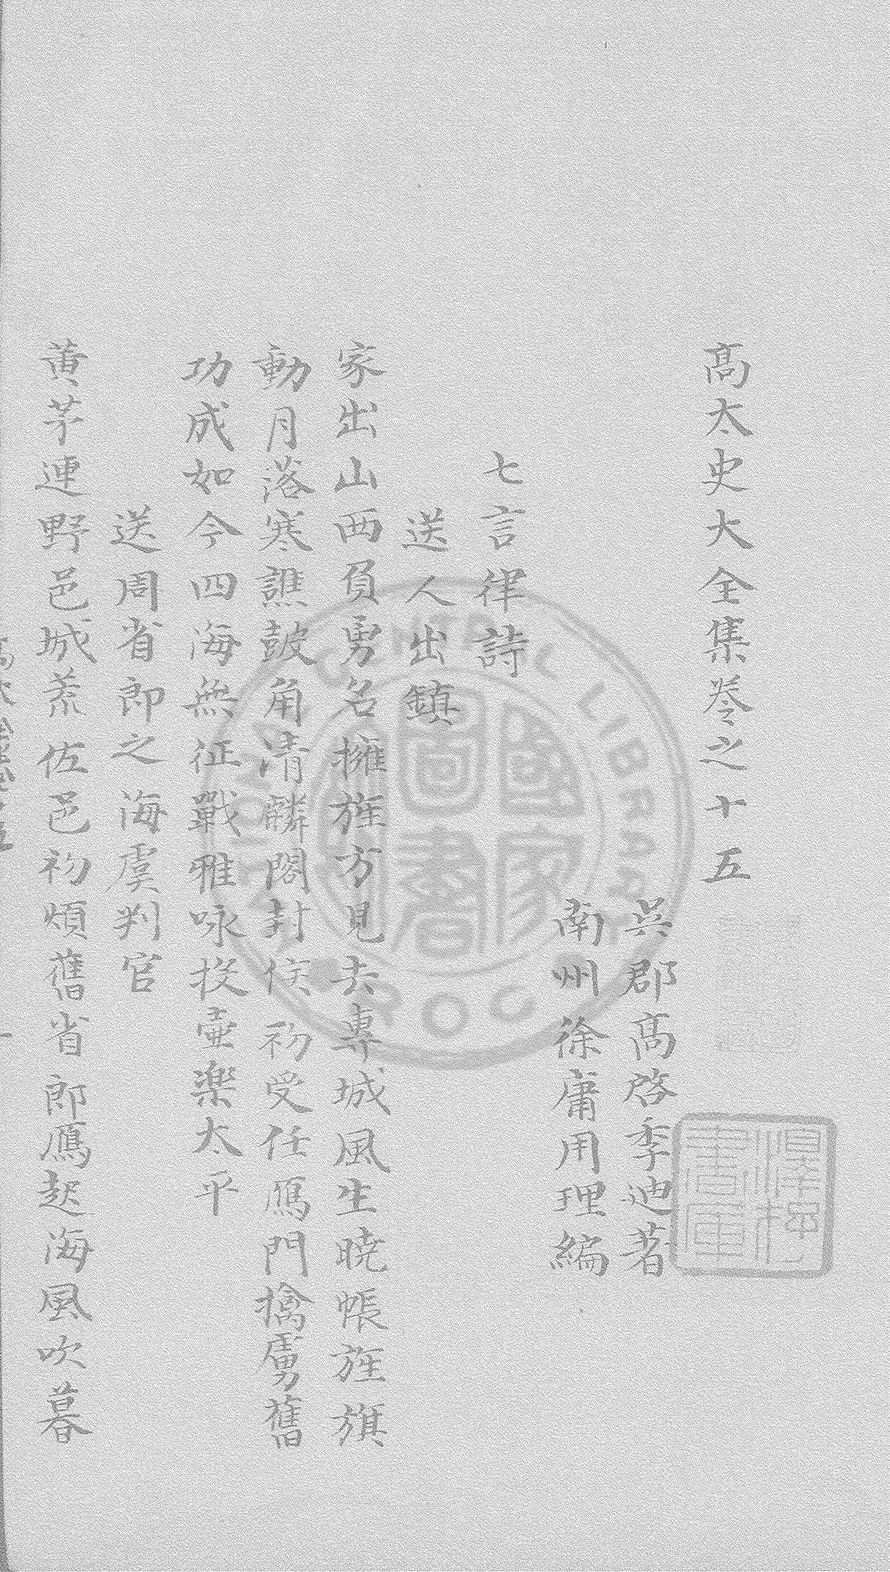 高太史大全集卷之十五
吳郡高啓季迪著
南州徐庸用理編
七言律詩
送人出鎮
家出山西負勇名擁旌方見去專城風生曉帳旌旗
動月落寒譙鼓角清麟閣封侯初受任鴈門擒虜舊
功成如今四海無征戰雅咏投壺樂太平
送周省郎之海虞判官
黄茅連野邑城荒佐邑初煩舊省郎鴈起海風吹暮
國家
圖書
CENTRAL LIBRARY
ROC